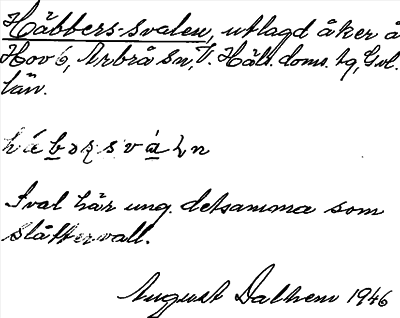 Häbbers-svalen, utlagd åker å
Hov 6, Arbrå sn, V. Häls. doms. tg, Gvl.
län.
hábərsváln
Sval här ung. detsamma som
slåttervall.
August Dalhem 1946